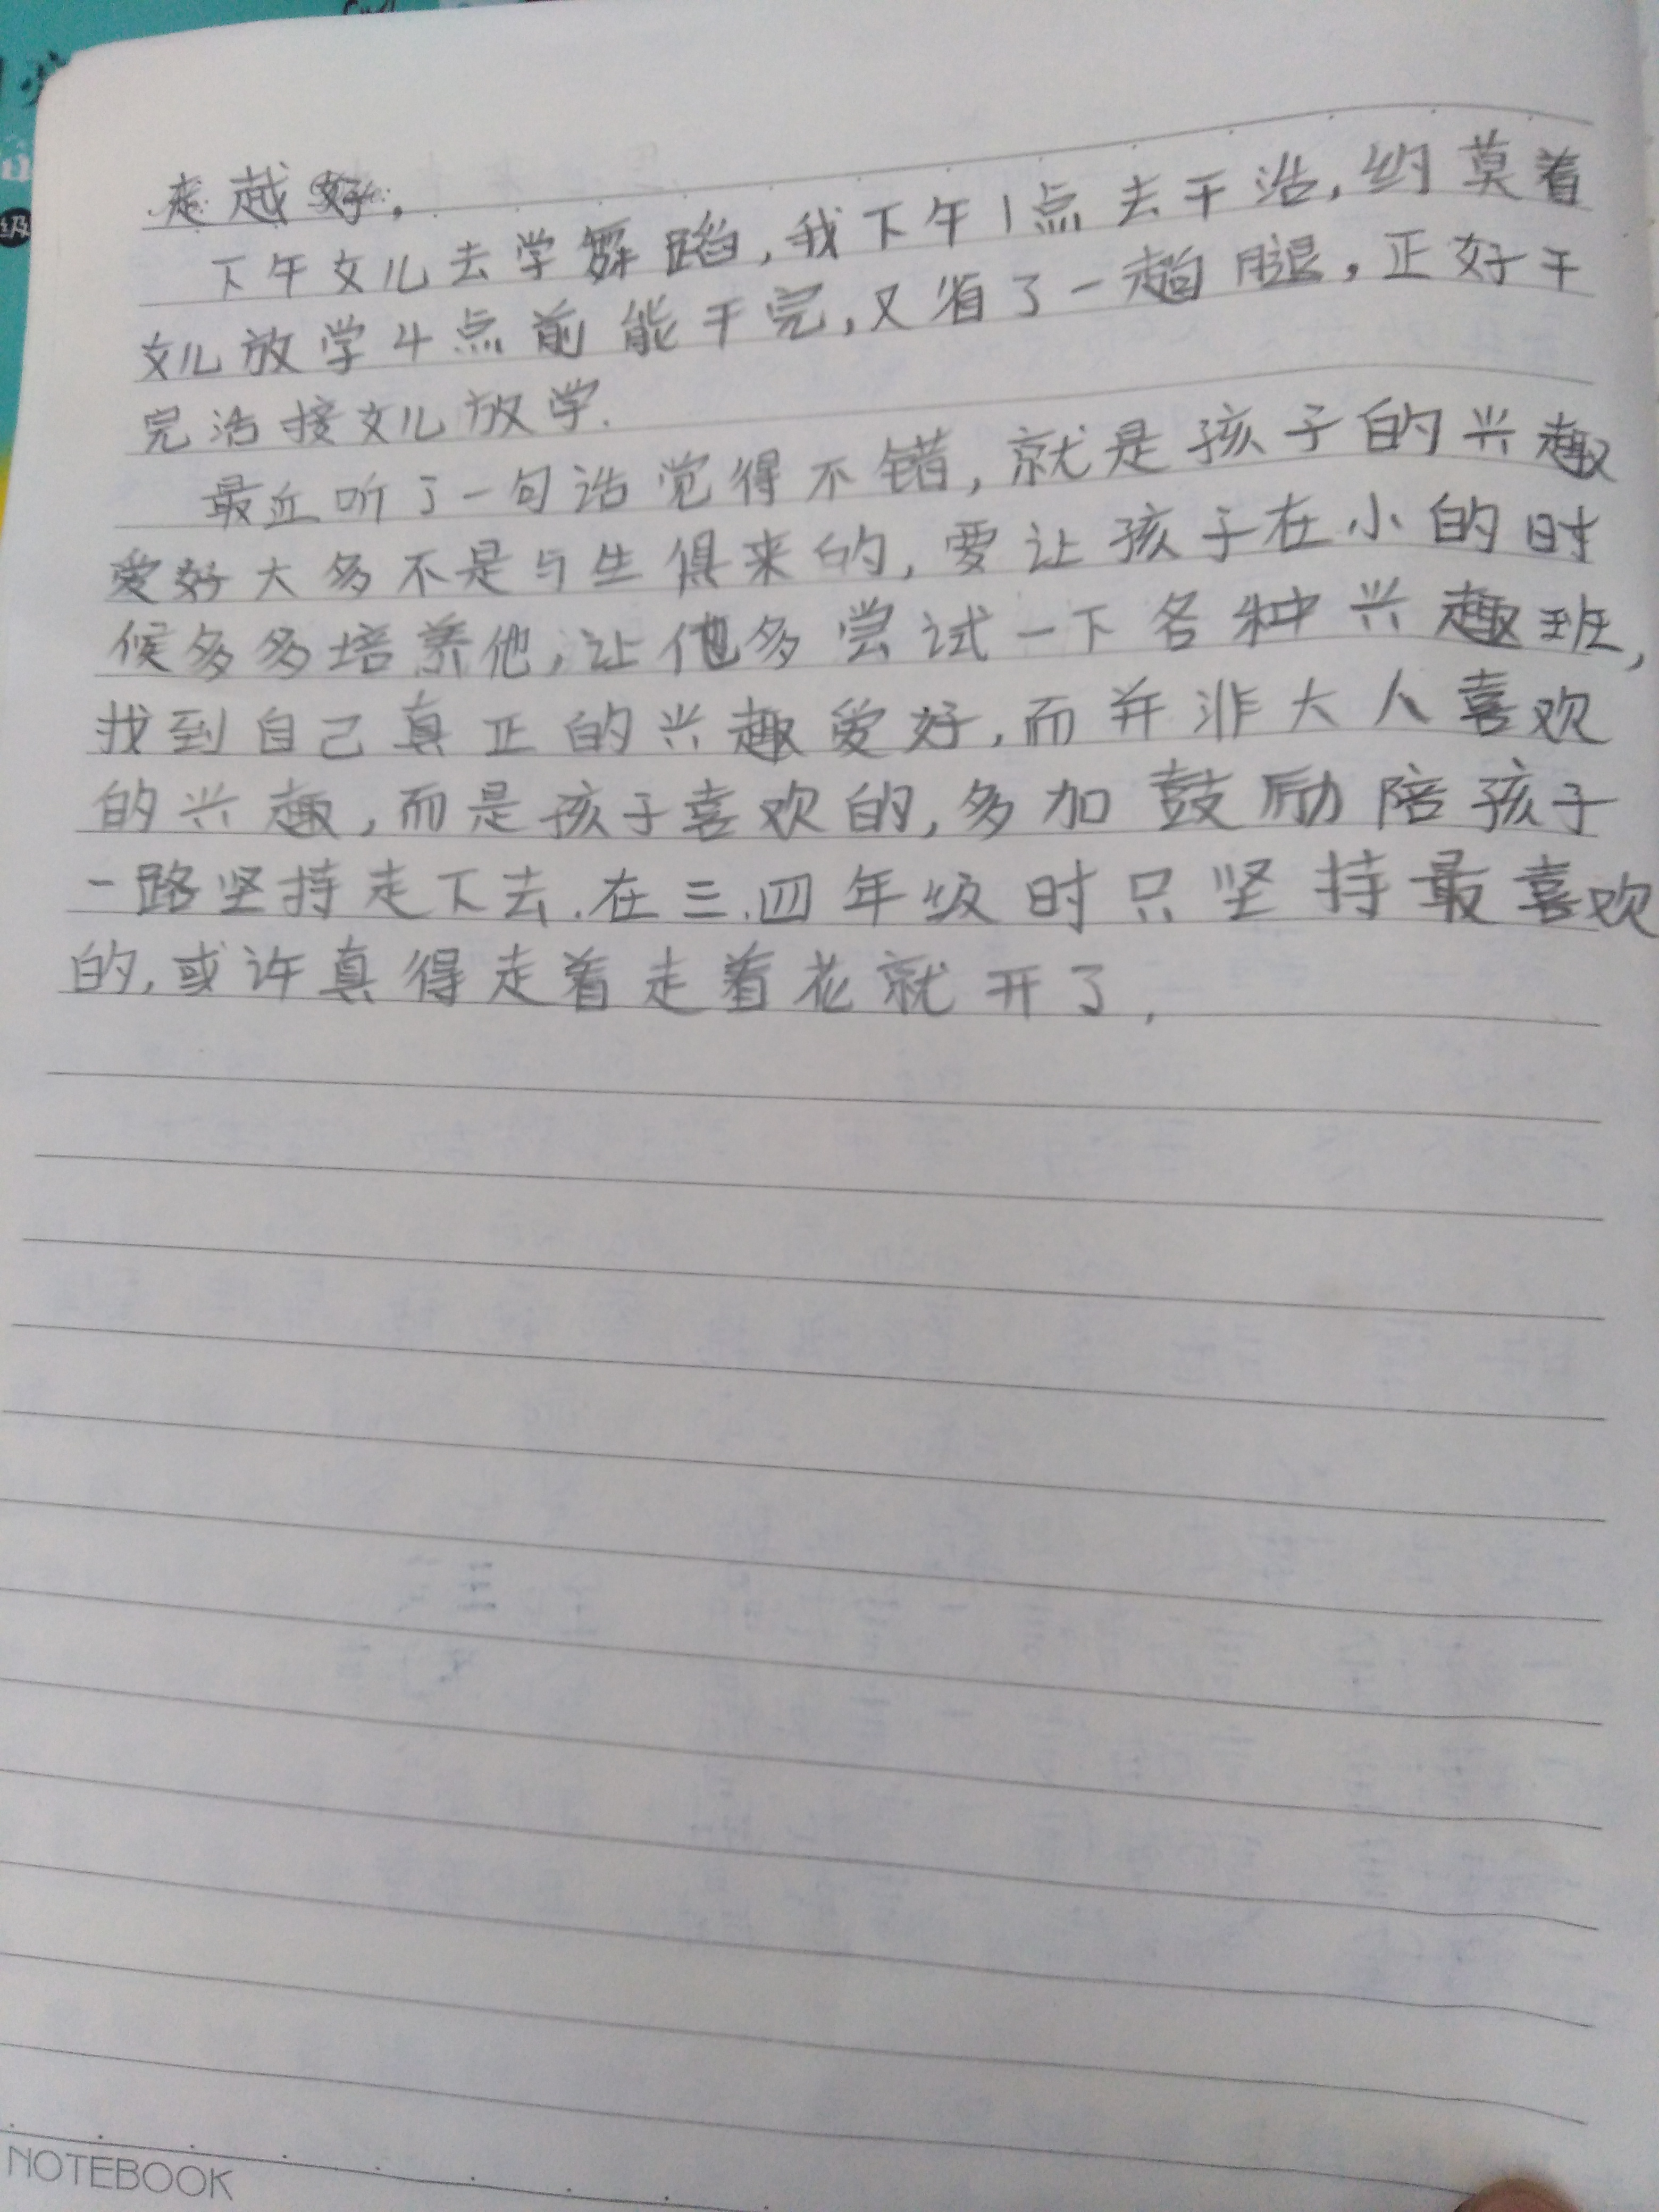 级
走越好.
下午女儿去学舞蹈,我下午1点去干活,约莫着
女儿放学4点前能干完,又省了一趟腿,正好干
完活接女儿放学.
最近听了一句话觉得不错,就是孩子的兴趣
爱好大多不是与生俱来的,要让孩子在小的时
候多多培养他,让他多尝试一下各种兴趣班,
找到自己真正的兴趣爱好,而并非大人喜欢
的兴趣,而是孩子喜欢的,多加鼓励陪孩子
一路坚持走下去.在三.四年级时只坚持最喜欢
的,或许真得走着走着花就开了.
NOTEBOOK